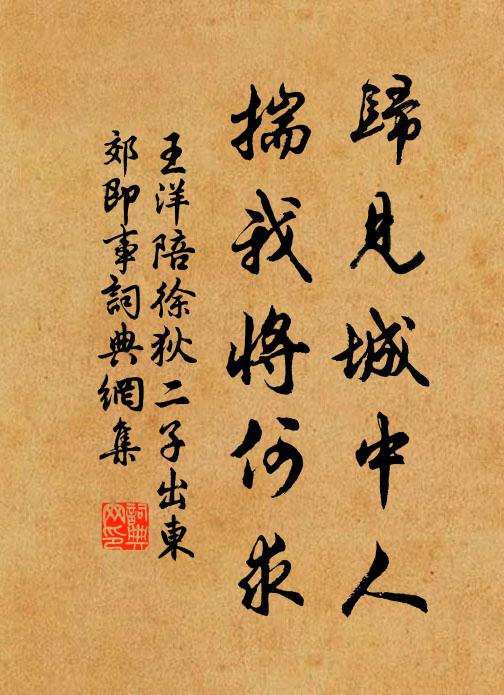 歸見城中人
揣我將何求
王洋陪徐狄二子出東
郊即事詞典網集
詞典
网印